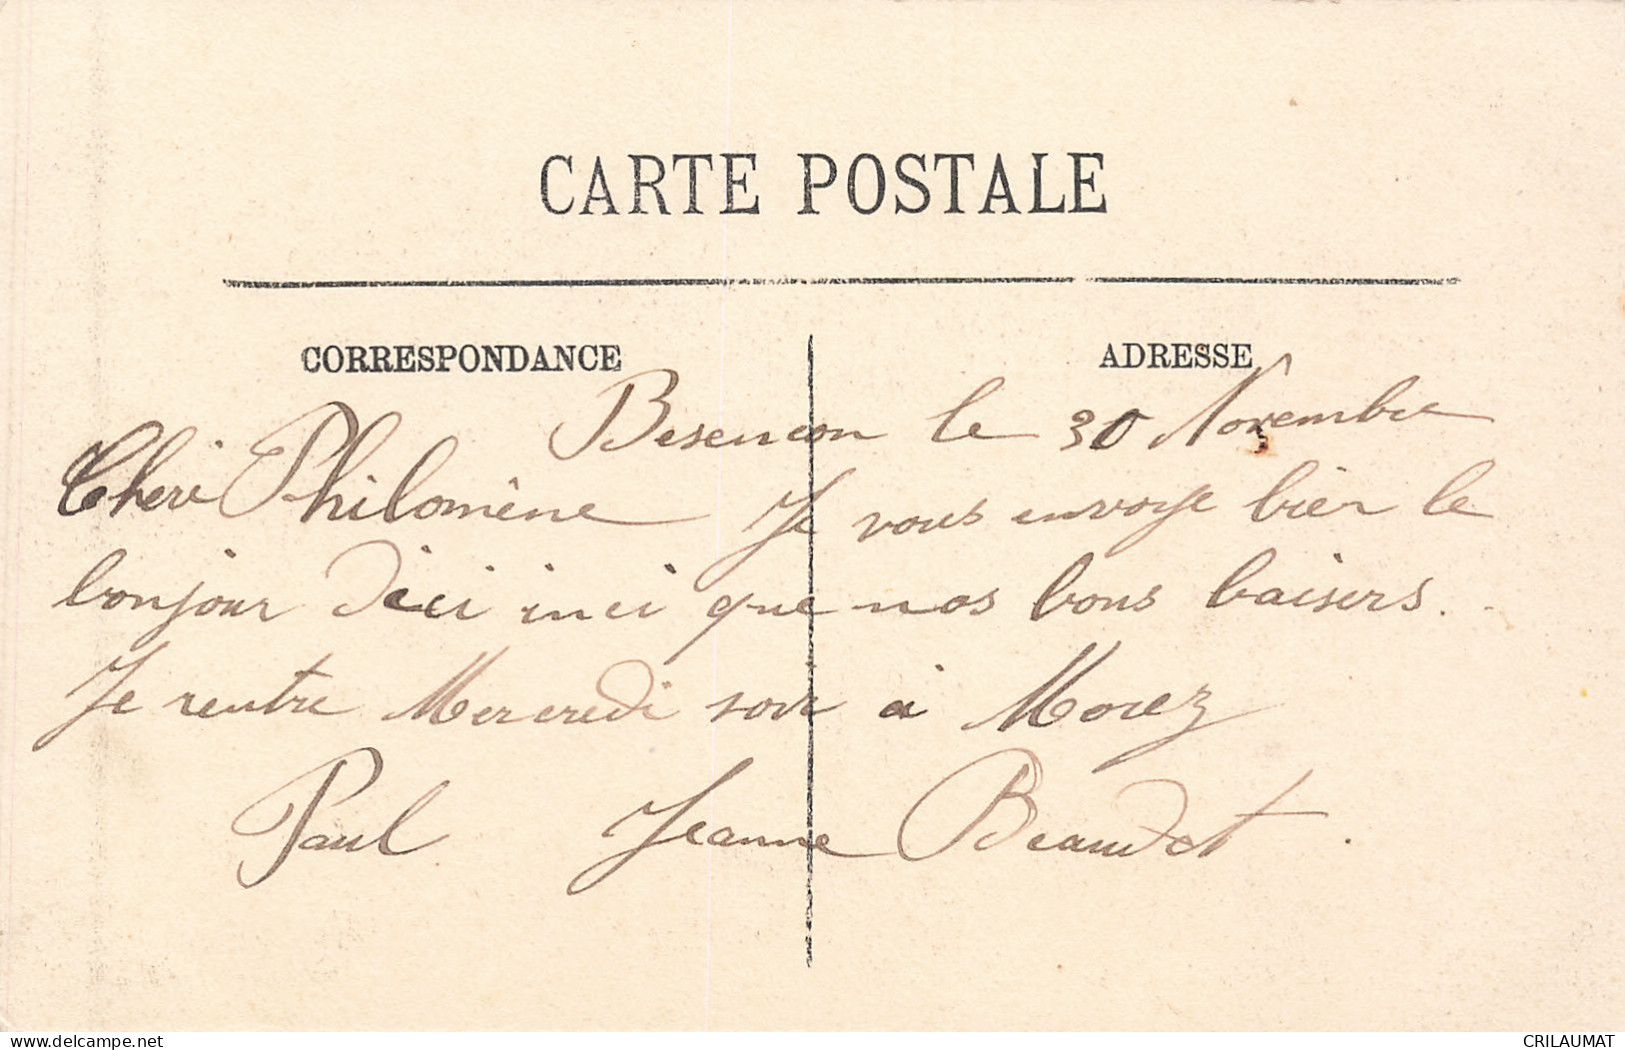 CARTE POSTALE
CORRESPONDANCE
ADRESSE
Besencon le 30 Novembre
Cheri Philomène Je vous envoye bien le
bonjour dici inci que nos bons baisers.
Je rentre Mercredi soir à Morez
Paul Jeanne Beaudot.
delcampe.net
CRILAUMAT